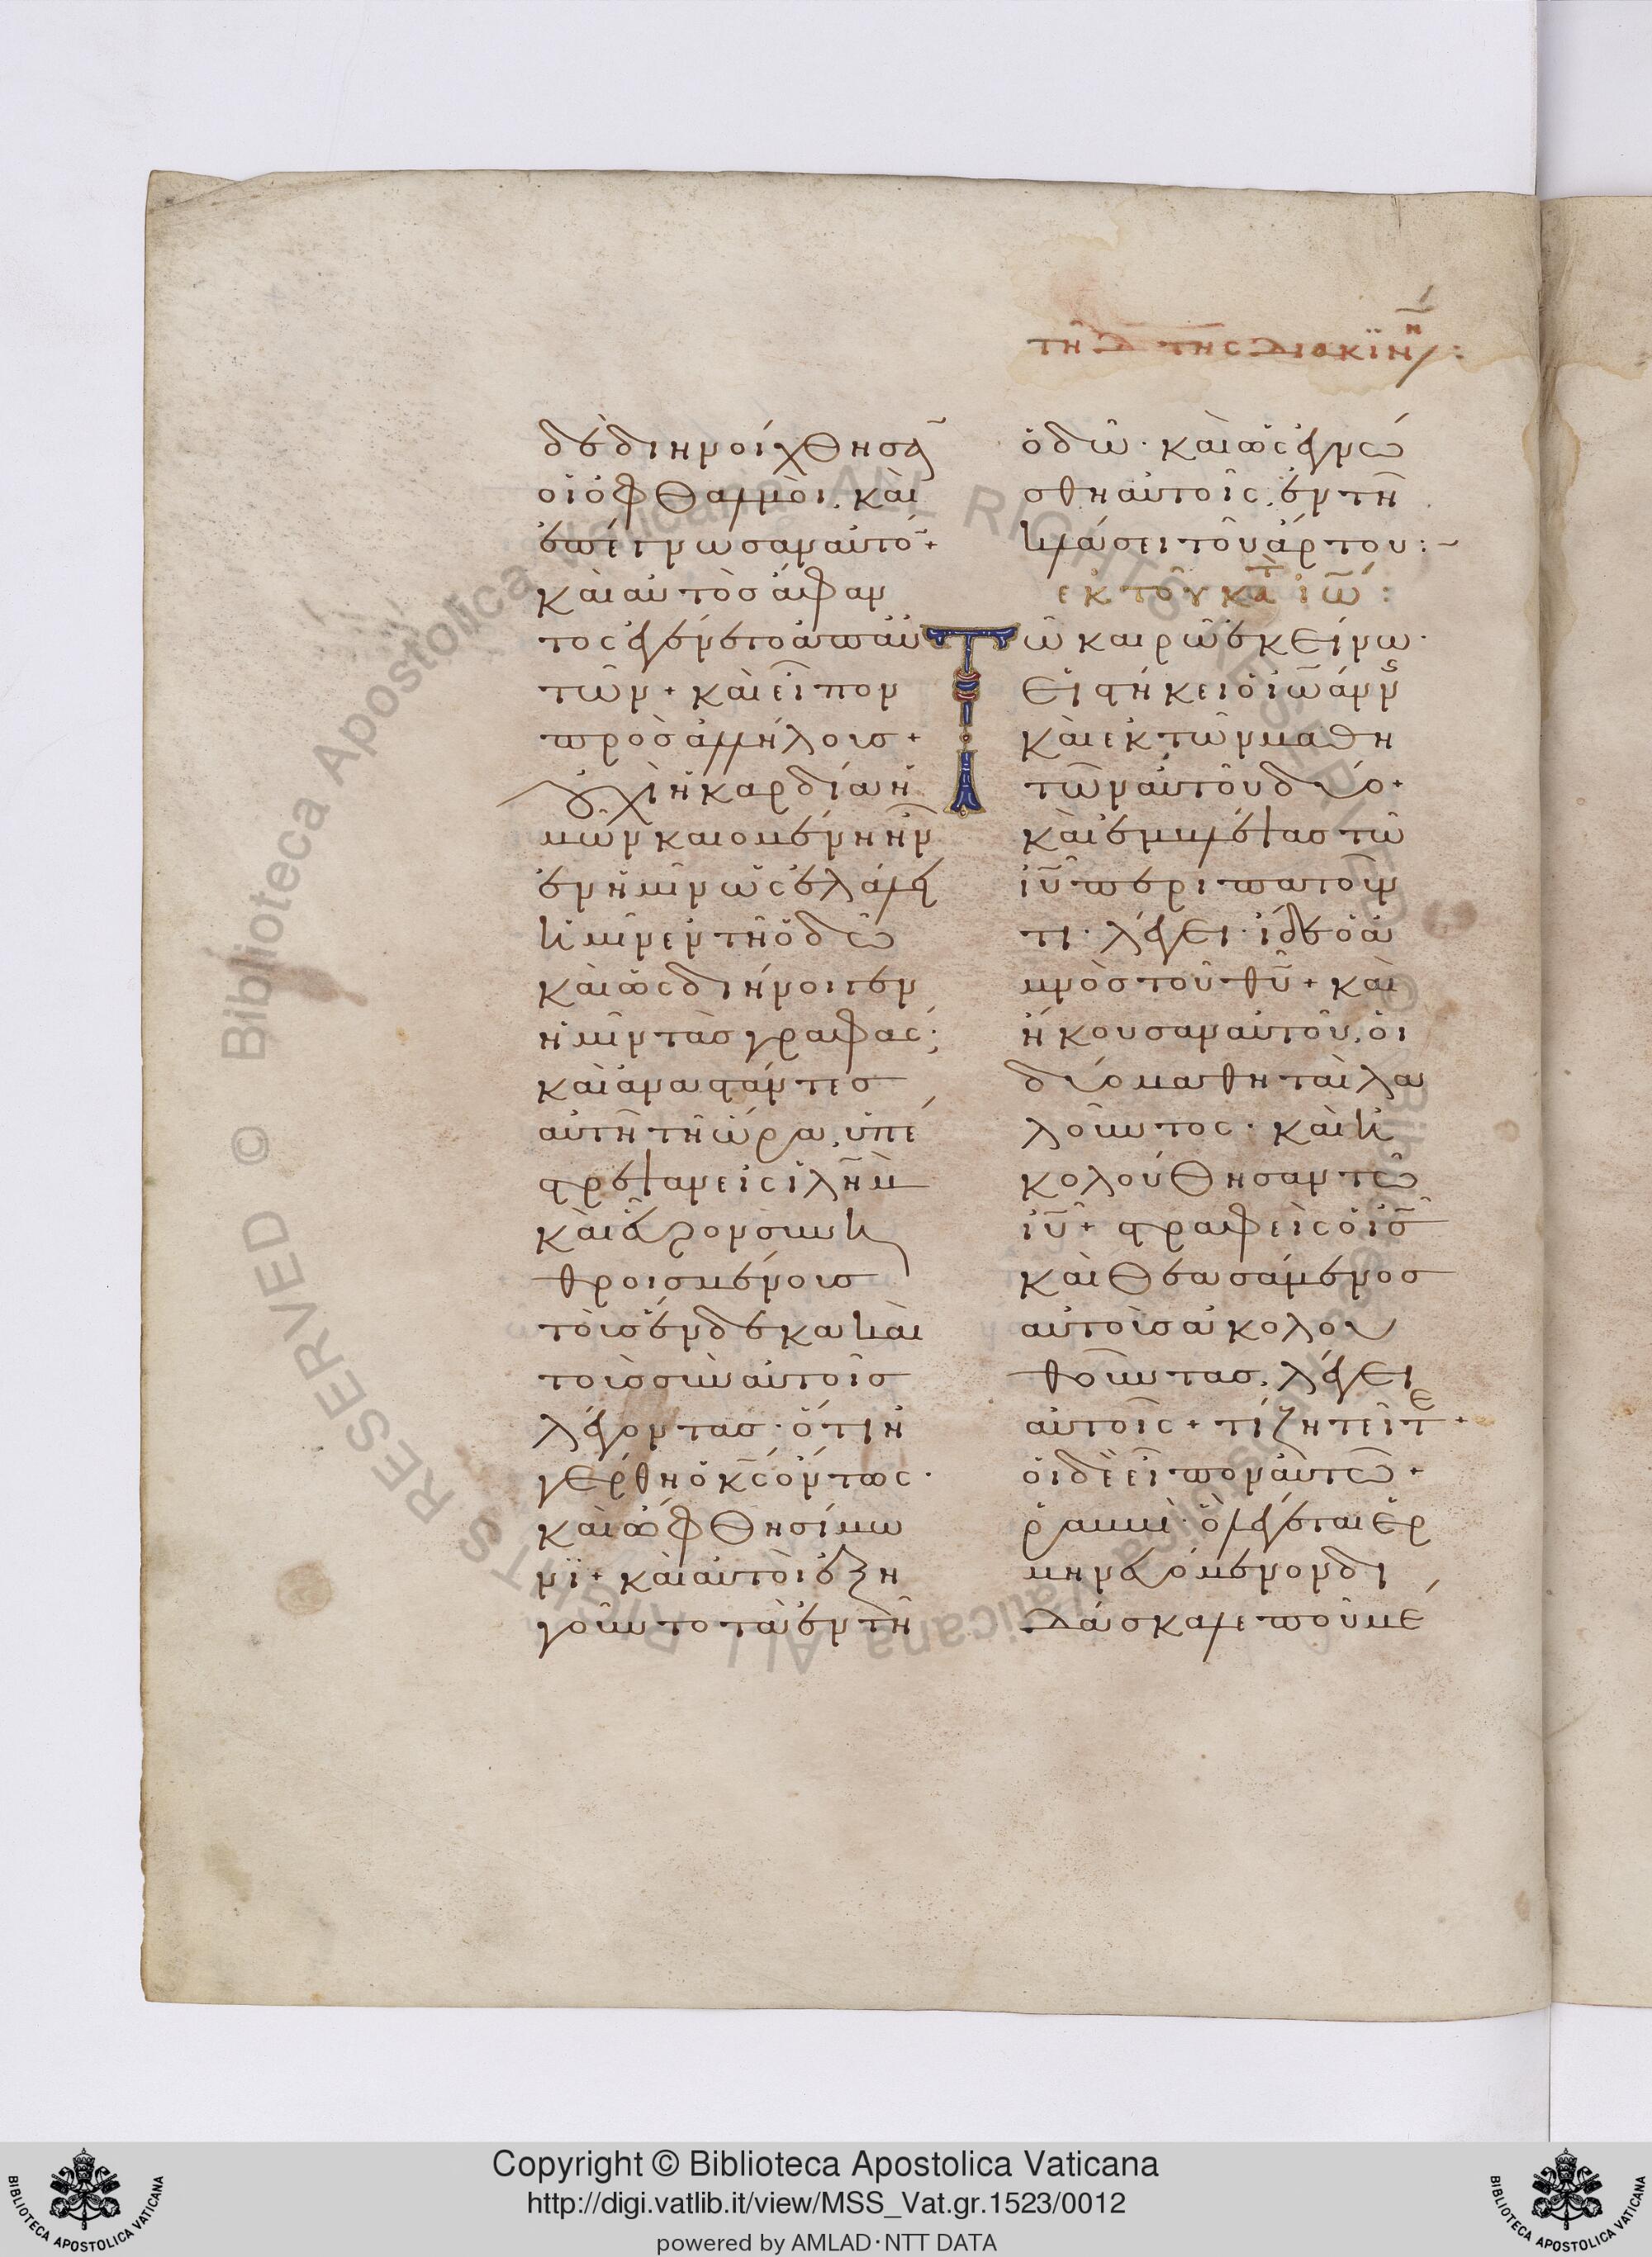 τῆ δ̅ τῆς διακϊνη̅/ :
δὲ διηνοίχθησα̅
οἱ ὀφθαλμοὶ. καὶ
ἐπέγνωσαν αὐτο̅+
καὶ αὐτὸσ ἄφαν
τος ἐγένετο ἀπ αὐ
τῶν + καὶ εἶπον
πρὸσ ἀλλήλουσ +
οὐχὶ ἡ καρδία ἡ
μῶν καιομένη ἦν
ἐν ἡμῖν ὡς ἐλάλει
ἡμῖν ἐν τῆ ὁδῶ
καὶ ὡς διήνοιγεν
ἡμῖν τὰσ γραφας;
καὶ ἀναστάντεσ
αὐτῆ τῆ ὥρα, ὑπέ
στρεψαν εἰς ἰλη̅μ
καὶ εὗρον συνη
θροισμένουσ
τοὺσ ἕνδεκα καὶ
τοὺσ σὺν αὐτοῖσ
λέγοντασ · ὅτι ἠ
γέρθη ὁ κ̅ς ὄντως ·
καὶ ὤφθη σίμω
νϊ + καὶ αὐτοὶ ἐξη
γοῦντο τὰ ἐν τῆ
ὁδῶ · καὶ ὡς ἐγνώ
σθη αὐτοῖς, ἐν τῆ
κλάσει τοῦ ἄρτου :~
εκ τοῦ κα̅τ ἰω̅ :
Τῶ καιρῶ ἐκείνω ·
εἱστήκει ὁ ἰω̅άννς
καὶ ἐκ τῶν μαθη
τῶν αὐτοῦ δύο +
καὶ ἐμβλέψας τῶ
ἰ̅υ περιπατοῦν
τι · λέγει · ἴδε ὁ ἀ
μνὸς τοῦ θ̅υ + καὶ
ἤκουσαν αὐτοῦ, οἱ
δύο μαθηταὶ λα
λοῦντος · καὶ ἠ
κολούθησαν τῶ
ἰ̅υ + στραφεὶς ὁ ἰ̅σ
καὶ θεασάμενοσ
αὐτοὺσ ἀκολου
θοῦντασ, λέγει
αὐτοῖς + τί ζητεῖτε +
οἱ δὲ εἶπον αὐτῶ +
ῥαββὶ · ὃ λέγεται ἑρ
μηνευόμενον δι
δάσκαλε ποῦ μέ
Copyright © Biblioteca Apostolica Vaticana
http://digi.vatlib.it/view/MSS_Vat.gr.1523/0012
powered by AMLAD·NTT DATA
BIBLIOTECA APOSTOLICA VATICANA
BIBLIOTECA APOSTOLICA VATICANA
© Biblioteca Apostolica Vaticana ALL RIGHTS RESERVED © Biblioteca Apostolica Vaticana ALL RIGHTS RESERVED